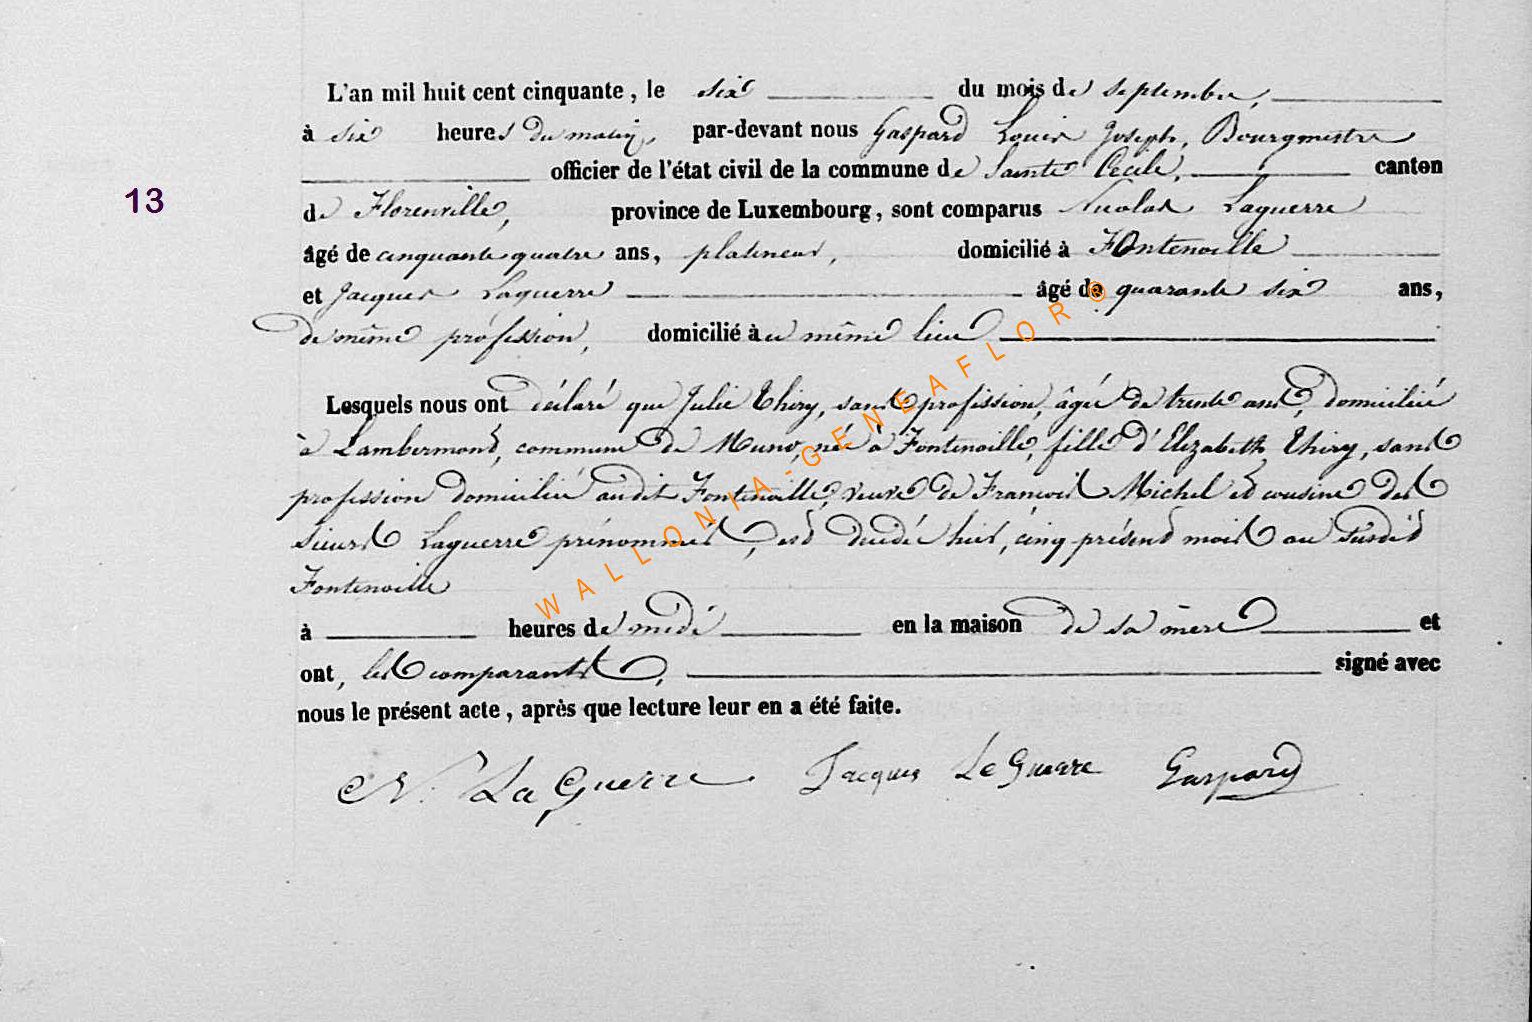 L'an mil huit cent cinquante, le six du mois de septembre,
à six heures du matin, par-devant nous Gaspard Louis Joseph, Bourgmestre
officier de l'état civil de la commune de Sainte Cecile, canton
13
de Florenville, province de Luxembourg, sont comparus Nicolas Laguerre
âgé de cinquante quatre ans, platineur, domicilié à Fontenoille
et Jacques Laguerre âgé de quarante six ans,
de même profession, domicilié à ce même lieu
Lesquels nous ont déclaré que Julie Thiry, sans profession, âgée de trente ans, domiciliée
à Lambermont, commune de Muno, née à Fontenoille, fille d'Elizabeth Thiry, sans
profession domiciliée audit Fontenoille, veuve de François Michel et cousine des
Sieurs Laguerre prénommés, est décédée hier, cinq présent mois au susdit
Fontenoille
à heures de midi en la maison de sa mère et
ont, les comparants, signé avec
nous le présent acte, après que lecture leur en a été faite.
N. La Guerre Jacques Le Guerre Gaspard
WALLONIA-GENEAFLOR®